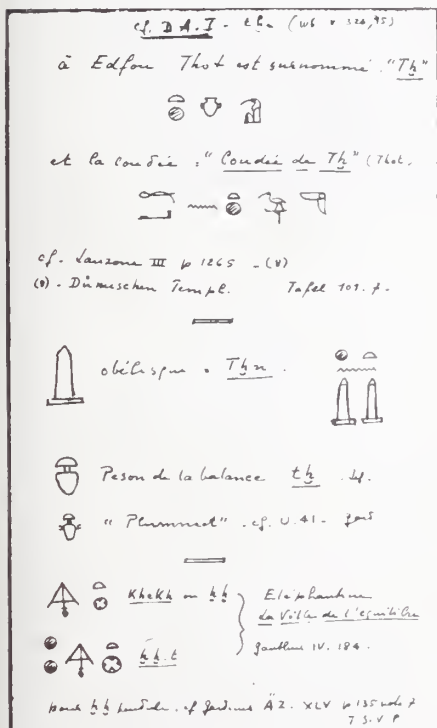 cf. D.A.I - tḫ. (Wb V 324,95)
à Edfou Thot est surnommé "Tḫ"
et la coudée : "Coudée de Tḫ" (Thot.
cf. Lanzone III p 1265 - (8)
(8) - Dümischen Templ. Tafel 101. 7.
obélisque = Tḫn.
Peson de la balance tḫ
"Plummet" . cf. U.41.
Khekh ou ḫḫ
Eléphantine
La Ville de l'équilibre
ḫḫ.t
Gauthier IV. 184.
pour ḫḫ cf Gardiner ÄZ. XLV p 135 note 7
T.S.V P